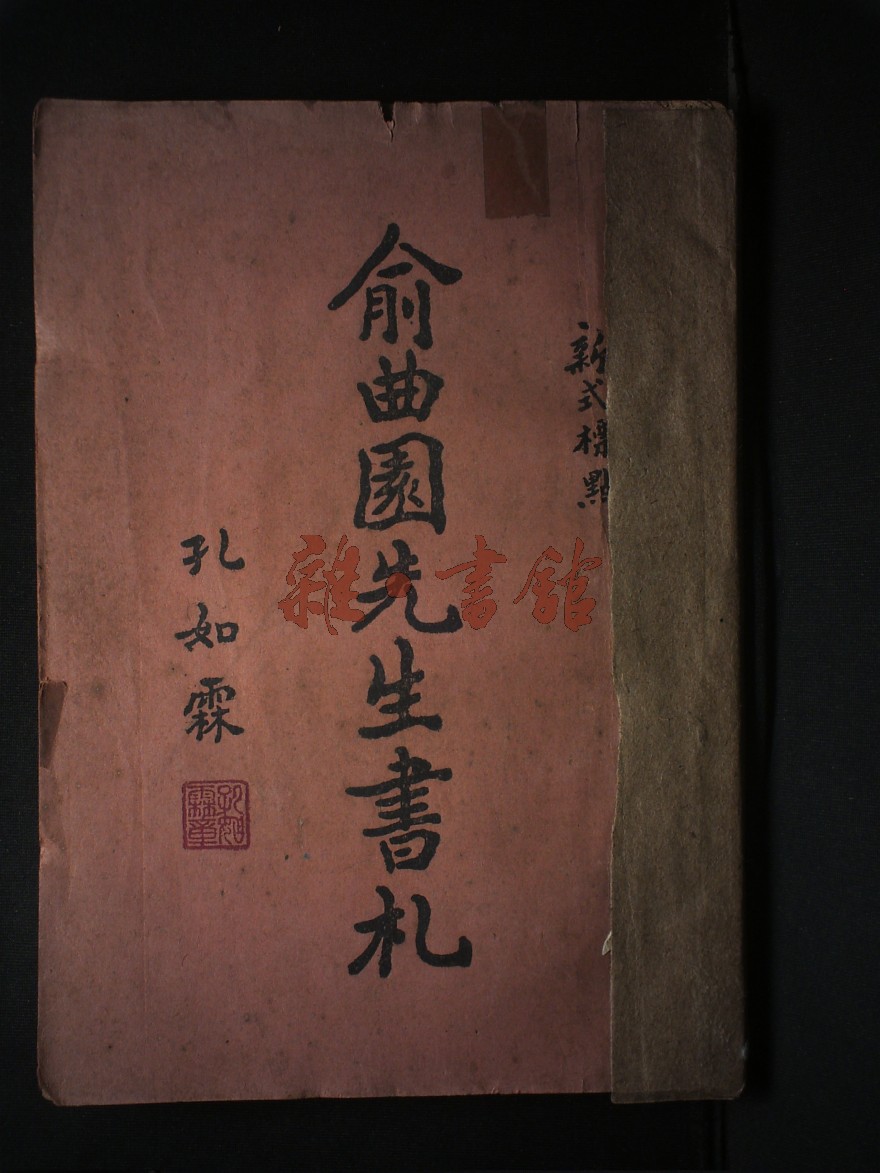 新式標點
俞曲園先生書札
孔如霖
孔如霖章
雜·書館